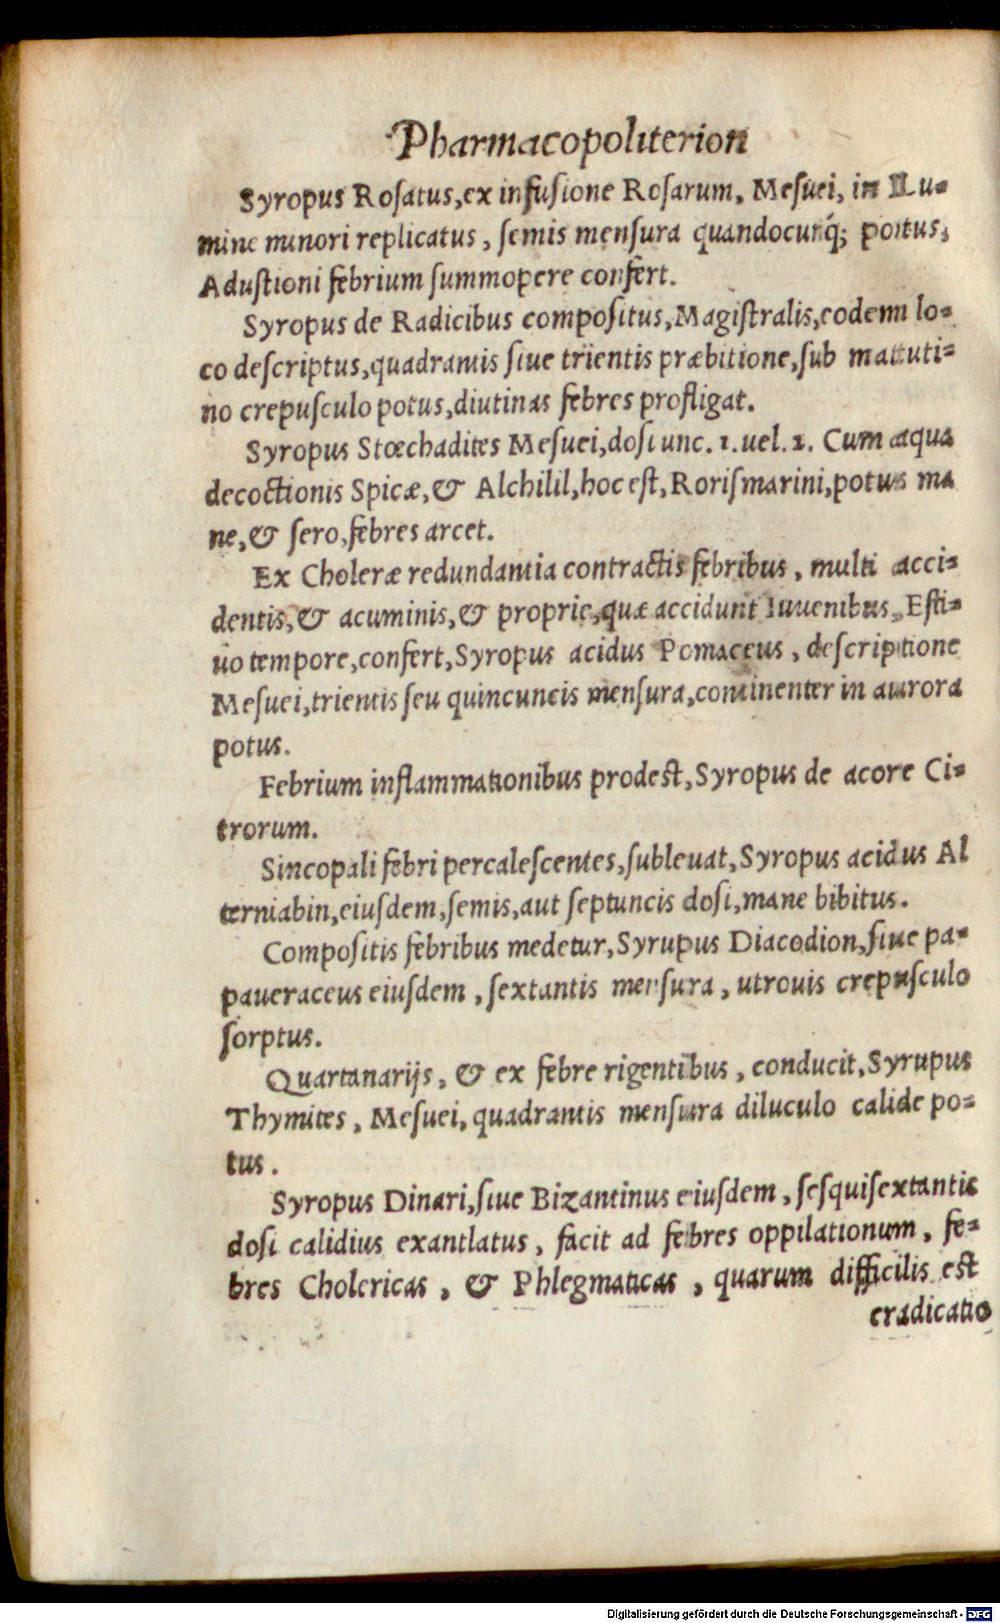 Pharmacopoliterion
Syropus Rosatus, ex infusione Rosarum, Mesuei, in Lu-
mine minori replicatus, semis mensura quandocunq́; potus,
Adustioni febrium summopere confert.
Syropus de Radicibus compositus, Magistralis, eodem lo-
co descriptus, quadrantis siue trientis præbitione, sub matuti-
no crepusculo potus, diutinas febres profligat.
Syropus Stœchadites Mesuei, dosi unc. 1. uel. 2. Cum aqua
decoctionis Spicæ, & Alchilil, hoc est, Rorismarini, potus ma
ne, & sero, febres arcet.
Ex Choleræ redundantia contractis febribus, multi acci-
dentis, & acuminis, & proprie, quæ accidunt Iuuenibus, Esti-
uo tempore, confert, Syropus acidus Pomaceus, descriptione
Mesuei, trientis seu quincuncis mensura, continenter in aurora
potus.
Febrium inflammationibus prodest, Syropus de acore Ci-
trorum.
Sincopali febri percalescentes, subleuat, Syropus acidus Al
terniabin, eiusdem, semis, aut septuncis dosi, mane bibitus.
Compositis febribus medetur, Syrupus Diacodion, siue pa-
paueraceus eiusdem, sextantis mensura, utrouis crepusculo
sorptus.
Quartanarijs, & ex febre rigentibus, conducit, Syrupus
Thymites, Mesuei, quadrantis mensura diluculo calide po-
tus.
Syropus Dinari, siue Bizantinus eiusdem, sesquisextantis
dosi calidius exantlatus, facit ad febres oppilationum, fe-
bres Cholericas, & Phlegmaticas, quarum difficilis est
eradicatio
Digitalisierung gefördert durch die Deutsche Forschungsgemeinschaft - DFG